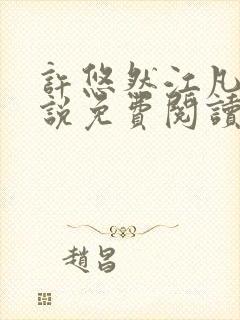 許悠然江凡
說免費閱讀
趙昌